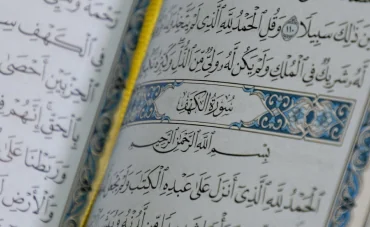 ذَٰلِكَ سَبِيلًا ١١٠ وَقُلِ ٱلْحَمْدُ لِلَّهِ ٱلَّذِى لَمْ يَتَّخِذْ
لَّهُۥ شَرِيكٌ فِى ٱلْمُلْكِ وَلَمْ يَكُن لَّهُۥ وَلِىٌّ مِّنَ ٱلذُّلِّ
سُورَةُ الْكَهْفِ
بِسْمِ ٱللَّهِ ٱلرَّحْمَٰنِ ٱلرَّحِيمِ
ٱلْحَمْدُ لِلَّهِ ٱلَّذِىٓ أَنزَلَ عَلَىٰ عَبْدِهِ ٱلْكِتَٰبَ وَلَمْ يَجْعَل
فِى ٱلْكَهْفِ سِنِينَ
ٱلْحِزْبَيْنِ أَحْصَىٰ
بِٱلْحَقِّ إِنَّهُمْ
وَرَبَطْنَا عَلَىٰ
وَٱلْأَرْضِ